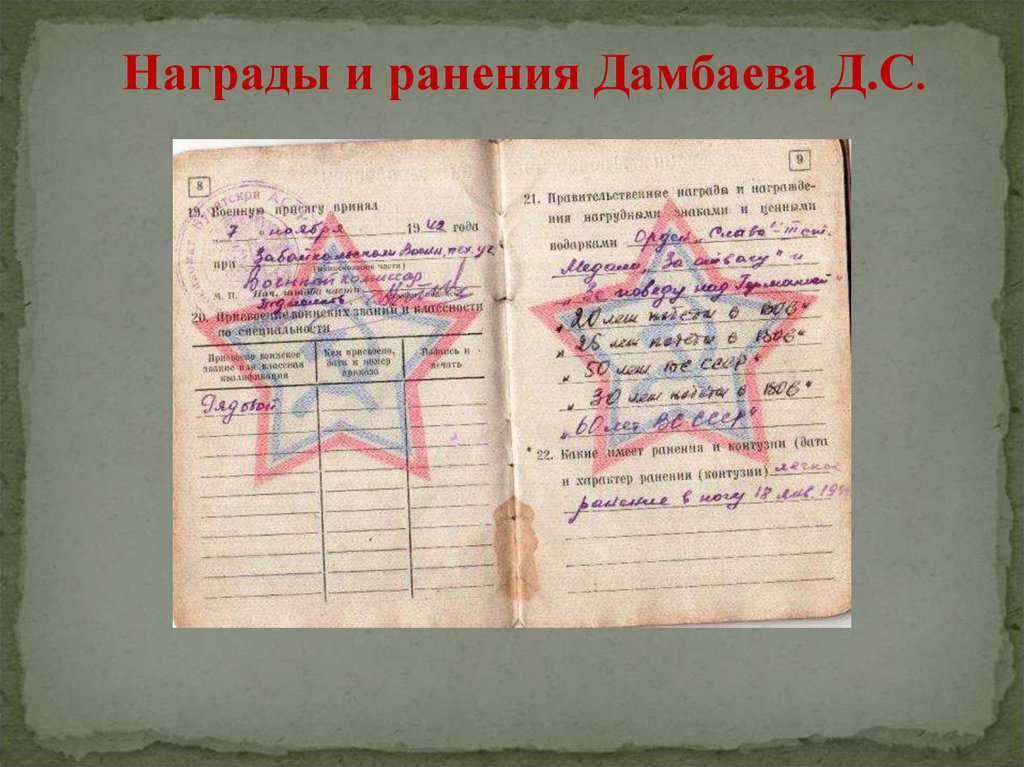 Награды и ранения Дамбаева Д.С.
8
19. Военную присягу принял
7 " ноября 1942 года
при Забайкальском Воен. тех. уч.
(наименование части)
Военный комиссар
М. П. Нач. штаба части
Подполковн.
20. Присвоение воинских званий и классности
по специальности
Присвоено воинское
звание или классная
квалификация
Кем присвоено,
дата и номер
приказа
Подпись и
печать
Рядовой
9
21. Правительственные награды и награжде-
ния нагрудными знаками и ценными
подарками Орден „Слава" III ст.
Медаль „За отвагу" и
„За победу над Германией"
„20 лет победы в ВОВ"
„25 лет победы в ВОВ"
„50 лет ВС СССР"
„30 лет победы в ВОВ"
„60 лет ВС СССР"
22. Какие имеет ранения и контузии (дата
и характер ранения (контузии) легкое
ранение в ногу 18 янв.